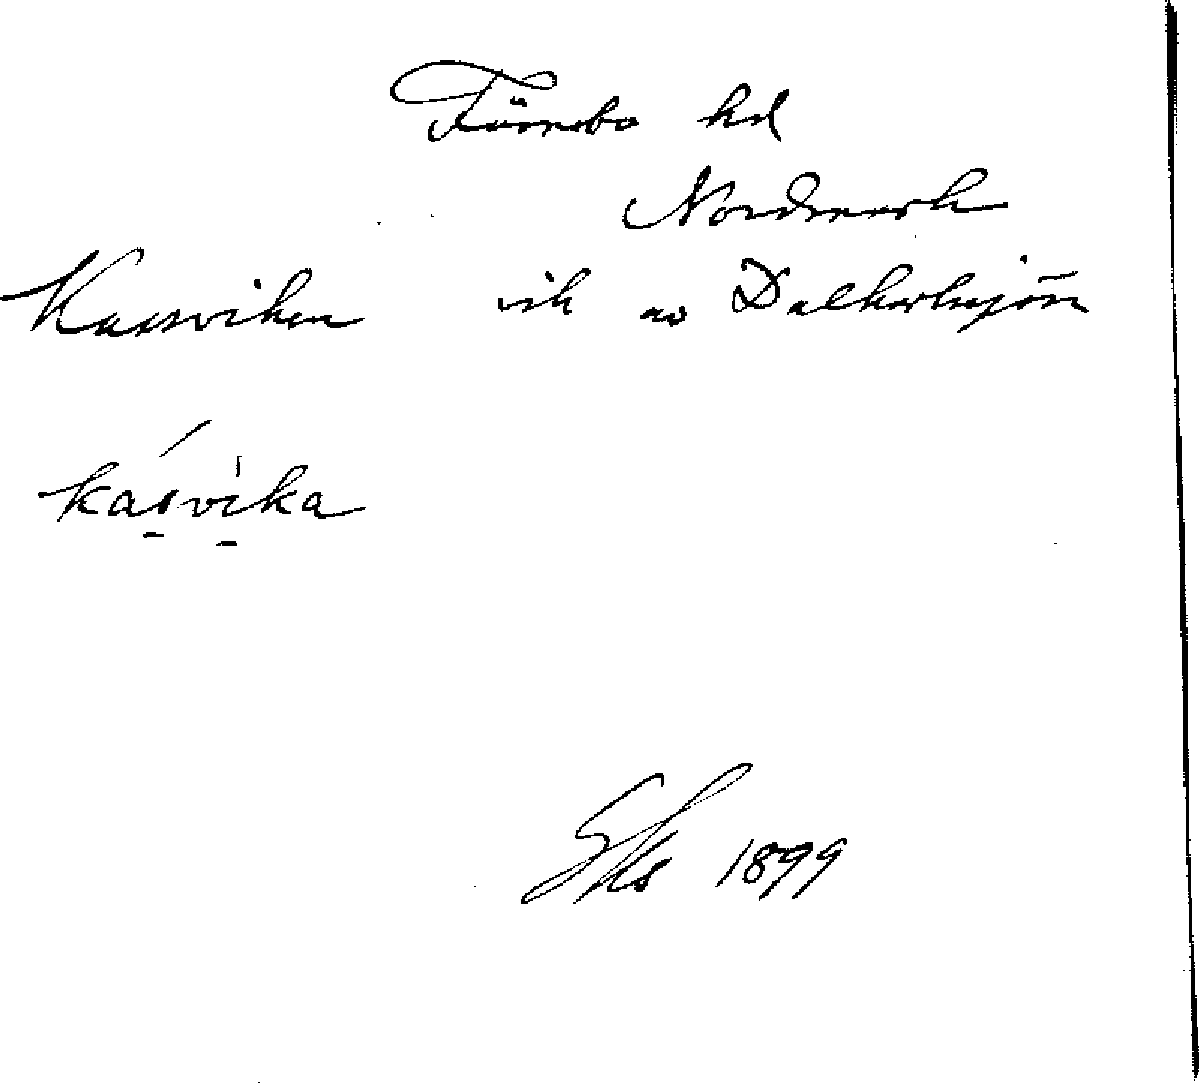 Färnebo hd
Nordmark
Kassviken vik av Dalkarlssjön
kásvika
1899